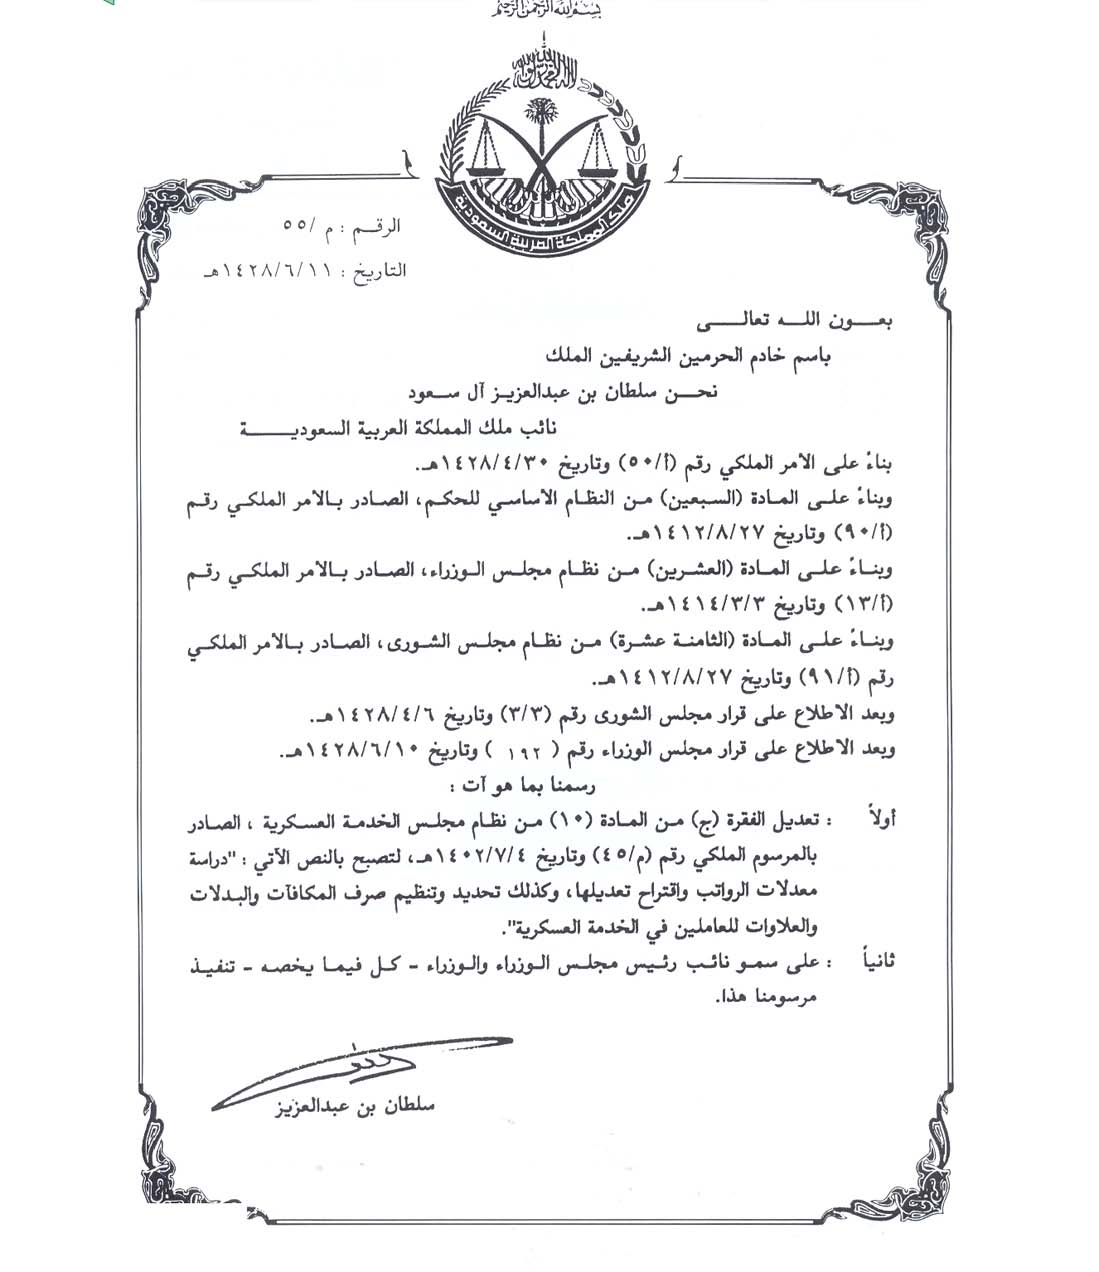 بسم الله الرحمن الرحيم
لا إله إلا الله محمد رسول الله
ملك المملكة العربية السعودية
الرقـم : م /٥٥
التاريخ : ١٤٢٨/٦/١١هـ
بعـــون اللـــه تعالـــى
باسم خادم الحرمين الشريفين الملك
نحـــن سلطان بن عبدالعزيـز آل سعود
نائب ملك المملكة العربية السعوديـــــة
بناءً على الامر الملكي رقم (أ/٥٠) وتاريخ ١٤٢٨/٤/٣٠هـ.
وبناءً علـى المـادة (السبعين) مـن النظام الأساسي للحكم، الصادر بـالامر الملكـي رقـم
(أ/٩٠) وتاريخ ١٤١٢/٨/٢٧هـ.
وبنـاءً علـى المـادة (العشرين) مـن نظام مجلـس الـوزراء، الصادر بـالامر الملكـي رقـم
(أ/١٣) وتاريخ ١٤١٤/٣/٣هـ.
وبنـاءً علـى المـادة (الثامنـة عشـرة) مـن نظام مجلـس الشـورى، الصـادر بـالامر الملكـي
رقم (أ/٩١) وتاريخ ١٤١٢/٨/٢٧هـ.
وبعد الاطلاع على قرار مجلس الشورى رقم (٣/٣) وتاريخ ١٤٢٨/٤/٦هـ.
وبعد الاطلاع على قرار مجلس الوزراء رقم ( ١٩٢ ) وتاريخ ١٤٢٨/٦/١٠هـ.
رسمنا بما هو آت :
أولاً : تعديل الفقرة (ج) مـن المـادة (١٠) مـن نظام مجلس الخدمـة العسـكرية ، الصـادر
بالمرسوم الملكي رقم (م/٤٥) وتاريخ ١٤٠٢/٧/٤هـ، لتصبح بالنص الآتي : "دراسة
معدلات الرواتب واقتراح تعديلها، وكذلك تحديد وتنظيم صرف المكافآت والبـدلات
والعلاوات للعاملين في الخدمة العسكرية".
ثانياً : علـى سمـو نائب رئـيس مجلـس الـوزراء والـوزراء - كـل فيمـا يخصـه - تنفيـذ
مرسومنا هذا.
سلطان بن عبدالعزيز